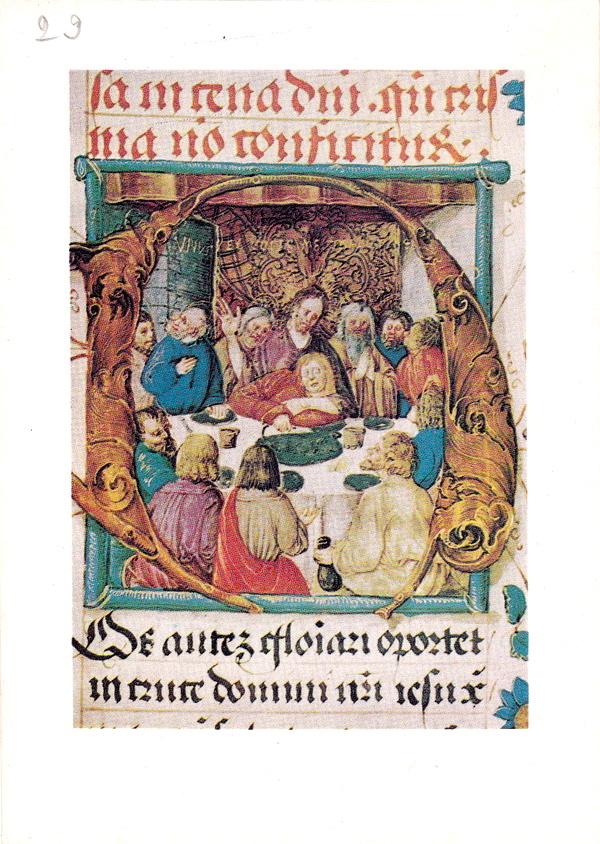 29
sa in cena dñi. qñ cris
ma nõ conficitur.
Os autez gloiari oportet
in cruce domini nri iesu x̄